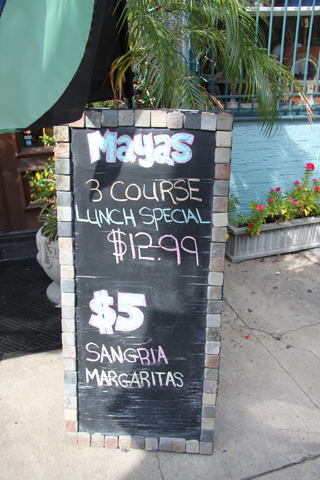 Mayas
3 COURSE
LUNCH SPECIAL
$12.99
$5
SANGRIA
MARGARITAS